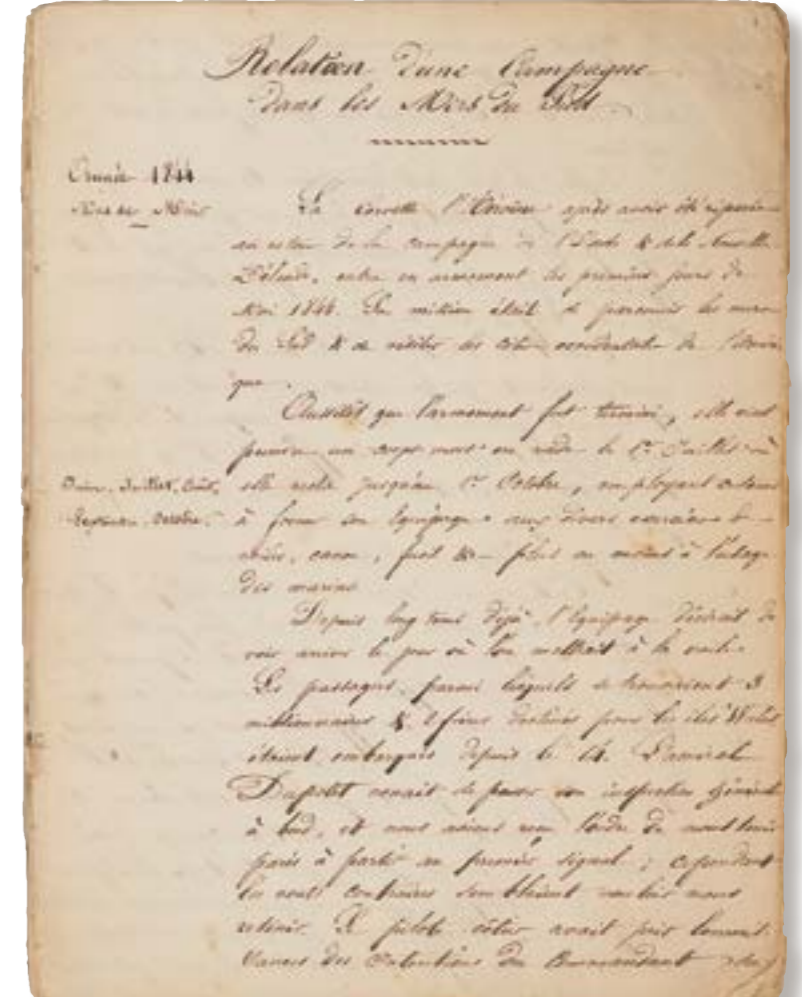 Relation d'une Campagne
dans les Mers du Sud
Année 1844
Mois de Mai
La corvette l'Héroïne après avoir été réparée
au retour de la campagne de l'Inde & de la Nouvelle
Zélande, entra en armement les premiers jours de
Mai 1844. Sa mission était de parcourir les mers
du Sud & de visiter les côtes occidentales de l'Améri
que.
Aussitôt que l'armement fut terminé, elle vint
prendre un corps mort en rade le 1er Juillet où
Juin, Juillet, Août,
Septembre, Octobre.
elle resta jusqu'au 1er Octobre, employant ce tems
à former son Equipage aux divers exercices de
voiles, canon, fusil &— plus ou moins à l'usage
des marins
Depuis long tems déjà, l'Equipage désirait de
voir arriver le jour où l'on mettrait à la voile.
Les passagers, parmi lesquels se trouvaient 3
missionnaires & 2 frères destinés pour les îles Wallis
étaient embarqués depuis le 14. L'amiral
Dupetit venait de passer son inspection générale
à bord, et nous avions reçu l'ordre de nous tenir
parés à partir au premier signal ; cependant
les vents contraires semblaient vouloir nous
retenir. Le pilote côtier avait pris
des intentions du Commandant